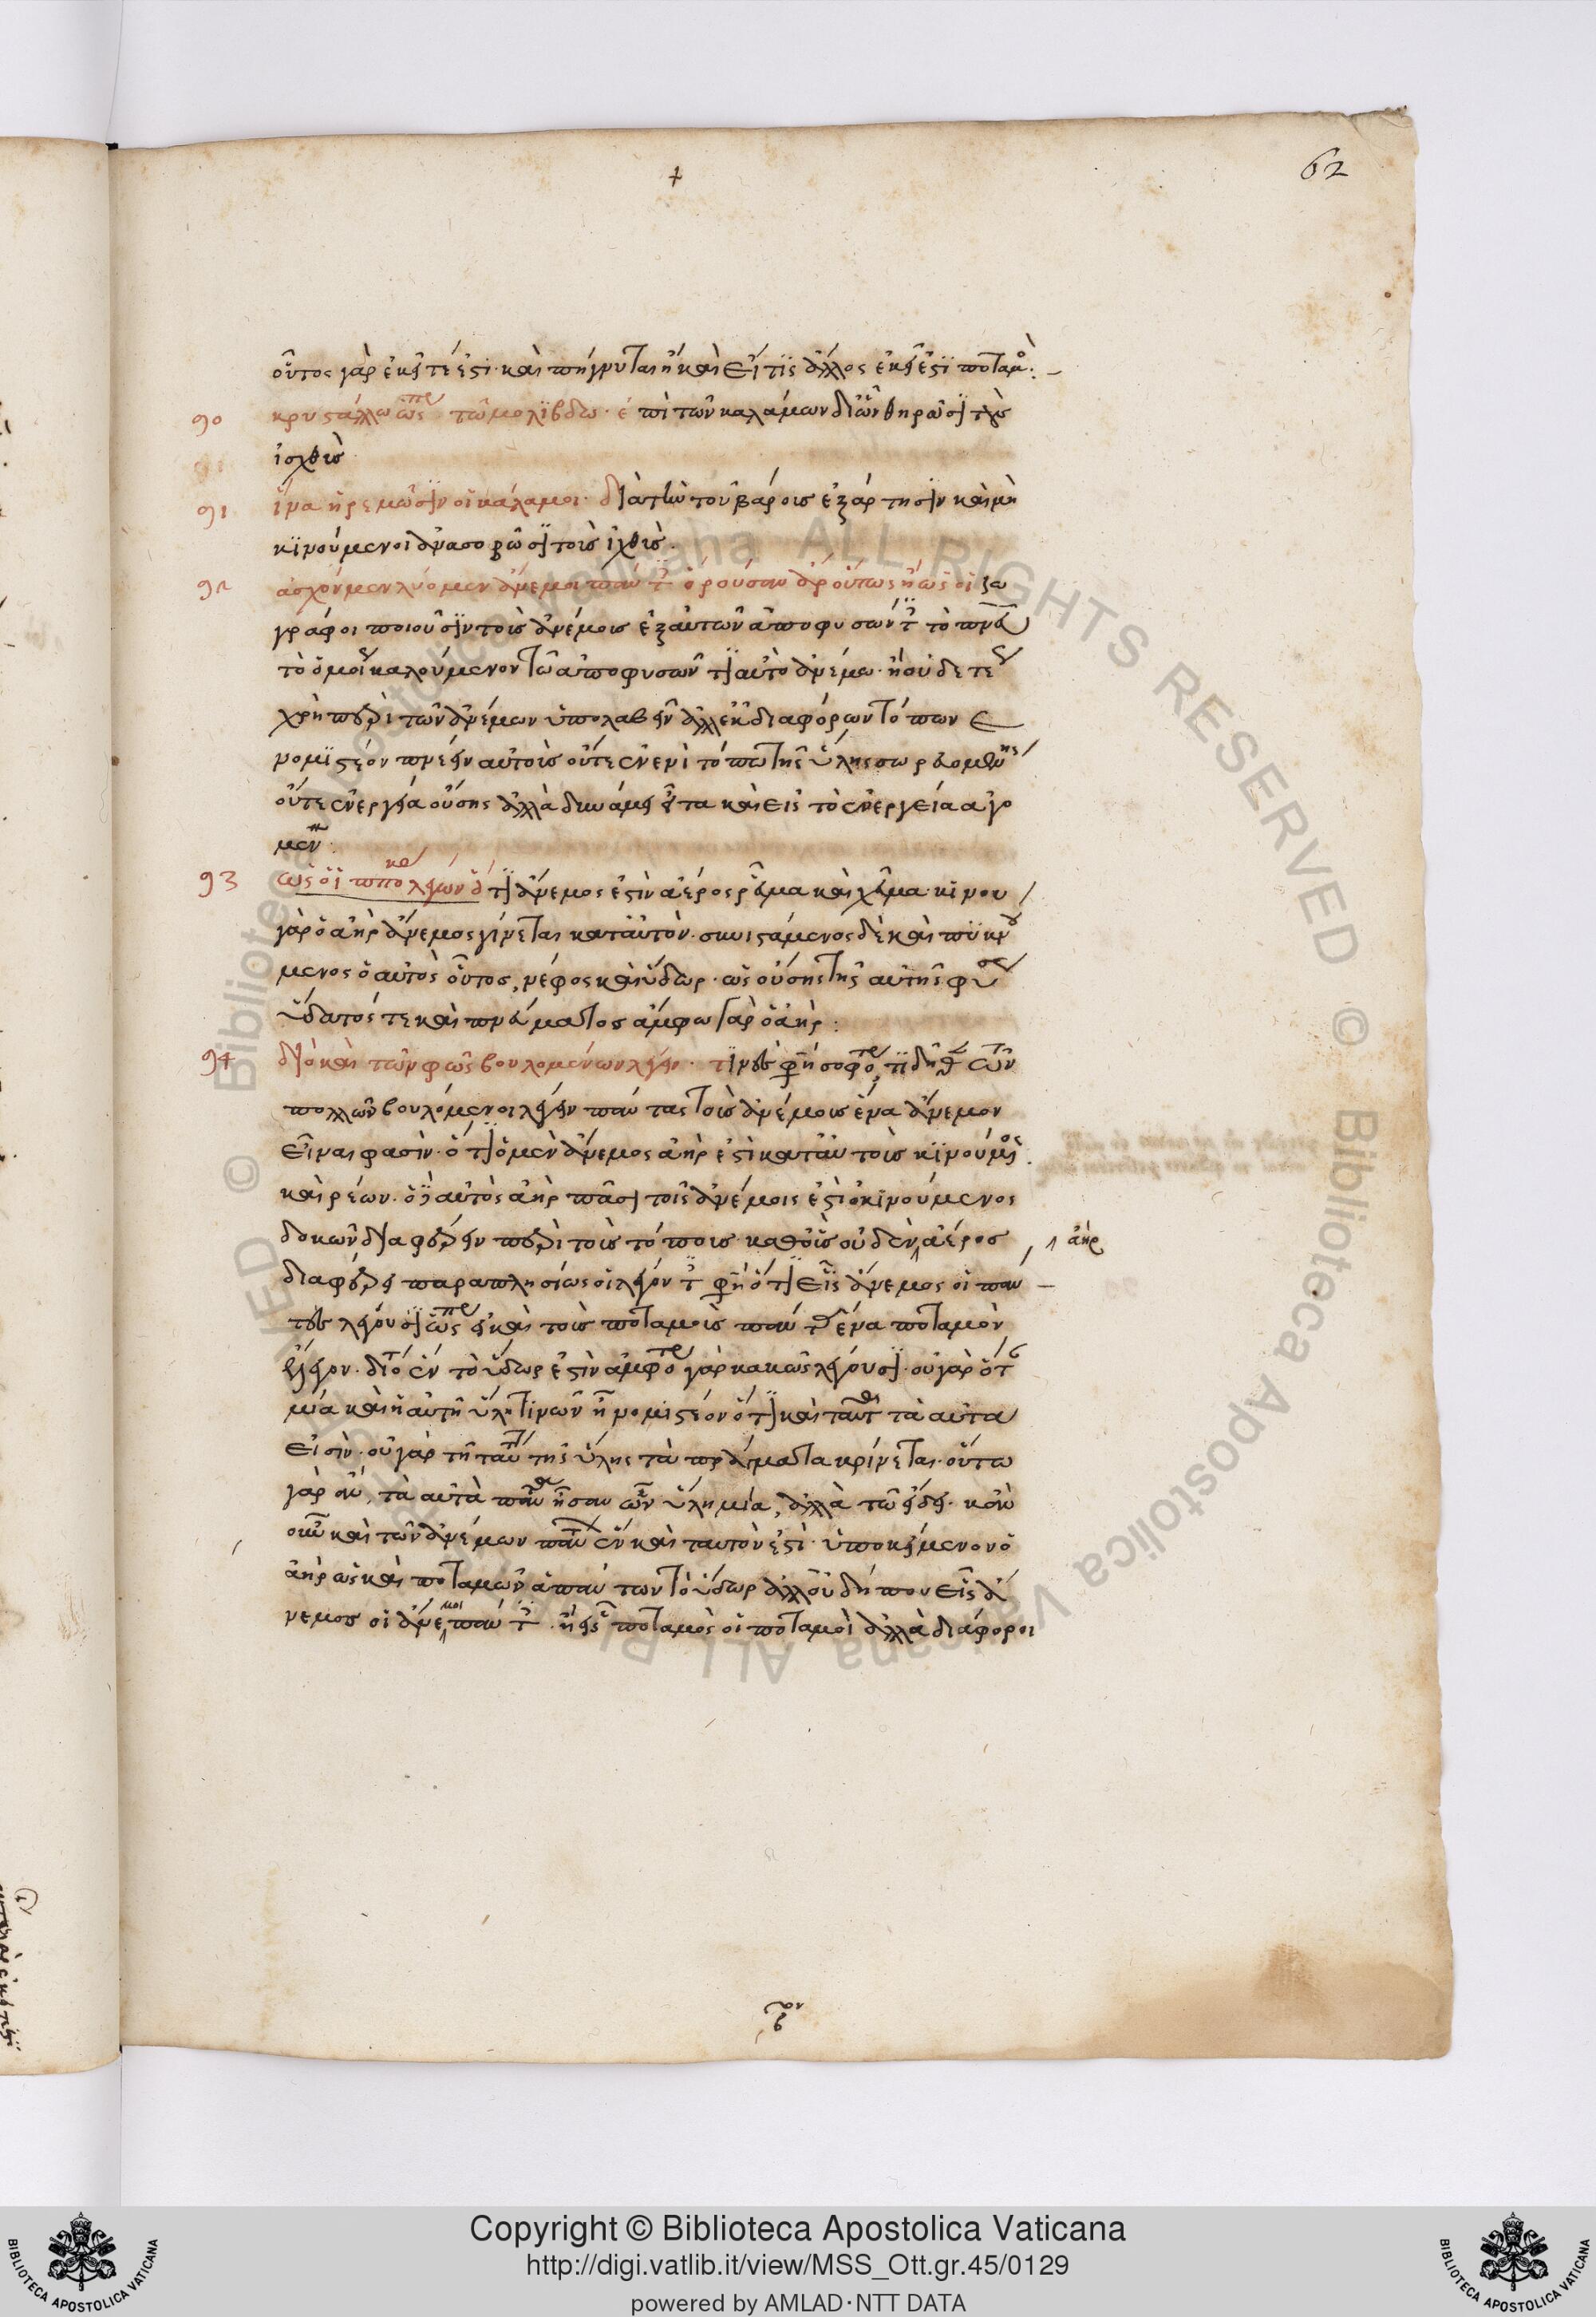 62
οὗτος γὰρ ἐκεῖ τέ ἐστι· καὶ πήγνυται ἢ καὶ εἴ τις ἄλλος ἐκεῖ ἐστι ποταμὸς:
90 κρυστάλλω ὥσπερ τῶ μολίβδω· ἐπὶ τῶν καλάμων δι' ὧν θηρῶσι τοὺς
ἰχθῦς
91 ἵνα ἠρεμῶσιν οἱ κάλαμοι· διὰ τὴν τοῦ βάρους ἐξάρτησιν καὶ μὴ
κινούμενοι ἀνασοβῶσι τοὺς ἰχθῦς.
92 ἄνεμοι πάντες ὁρούσαν οὕτως ἢ ὡς οἱ ζω
γράφοι ποιοῦσιν τοὺς ἀνέμους ἐξ αὐτῶν ἀποφυσῶντες τὸ πνεῦμα
τὸ ὁμοίως καλούμενον τῶ ἀποφυσῶντι αὐτὸ ἀνέμω·
χρὴ περὶ τῶν ἀνέμων ὑπολαβεῖν ἀλλ' ἐκ διαφόρων τόπων
νομιστέον πνεῖν αὐτοὺς οὔτε ἐν ἑνὶ τόπω τῆς ὕλης σωρευομένης
οὔτε ἐνεργεία οὔσης ἀλλὰ δυνάμει εἶτα καὶ εἰς τὸ ἐνεργεία ἀγο
μένης:
93 ὡς οἱ πολλοὶ λέγουσιν ὅτι ἄνεμος ἐστὶν ἀέρος ῥεῦμα καὶ χεῦμα· κινού
γὰρ ὁ ἀὴρ ἄνεμος γίνεται κατ' αὐτὸν· συνιστάμενος δὲ καὶ πυκνού
μενος ὁ αὐτὸς οὗτος, νέφος καὶ ὕδωρ· ὡς οὔσης τῆς αὐτῆς φύσεως
ὕδατός τε καὶ πνεύματος ἄμφω γὰρ ὁ ἀὴρ:
94 διὸ καὶ τῶν σοφῶς βουλομένων λέγειν· τινές φησι σοφώτερον τι δῆθεν τῶν
πολλῶν βουλόμενοι λέγειν πάντας τοὺς ἀνέμους ἕνα ἄνεμον
εἶναι φασὶν· ὅτι ὁ μὲν ἄνεμος ἀήρ ἐστι κατ' αὐτοὺς κινούμενος
καὶ ῥέων· ὁ δὲ αὐτὸς ἀὴρ πᾶσι τοῖς ἀνέμοις ἐστὶ ὁ κινούμενος
δοκῶν διαφέρειν περὶ τοὺς τόπους· καθ' οὓς οὐδὲν ἀέρος
ἀὴρ
διαφέρει παραπλησίως οἱ λέγοντες φησι ὅτι εἷς ἄνεμος οἱ πάν
τες λέγουσι ὥσπερ εἰ καὶ τοὺς ποταμοὺς πάντας ἕνα ποταμὸν
ἔλεγον· διότι ἓν τὸ ὕδωρ ἐστὶν ἀμφότεροι γὰρ κακῶς λέγουσι· οὐ γὰρ ὅτι
μία καὶ ἡ αὐτὴ ὕλη τινῶν ἤδη νομιστέον ὅτι καὶ ταῦτα τὰ αὐτά
εἰσιν· οὐ γὰρ τῆ ταυτότητι τῆς ὕλης τὰ πράγματα κρίνεται· οὕτω
γὰρ ἂν, τὰ αὐτὰ πάντα ἦσαν ὧν ὕλη μία, ἀλλὰ τῶ εἴδει· κἂν
οὖν καὶ τῶν ἀνέμων πάντων ἓν καὶ ταυτὸν ἐστὶ· ὑποκείμενον ὁ
ἀὴρ ὡς καὶ ποταμῶν ἁπάντων τὸ ὕδωρ ἀλλ' οὐ δήπου εἷς ἄ
νεμος οἱ ἄνεμοι πάντες· ἢ εἷς ποταμὸς οἱ ποταμοὶ ἀλλὰ διάφοροι
Copyright © Biblioteca Apostolica Vaticana
http://digi.vatlib.it/view/MSS_Ott.gr.45/0129
powered by AMLAD·NTT DATA